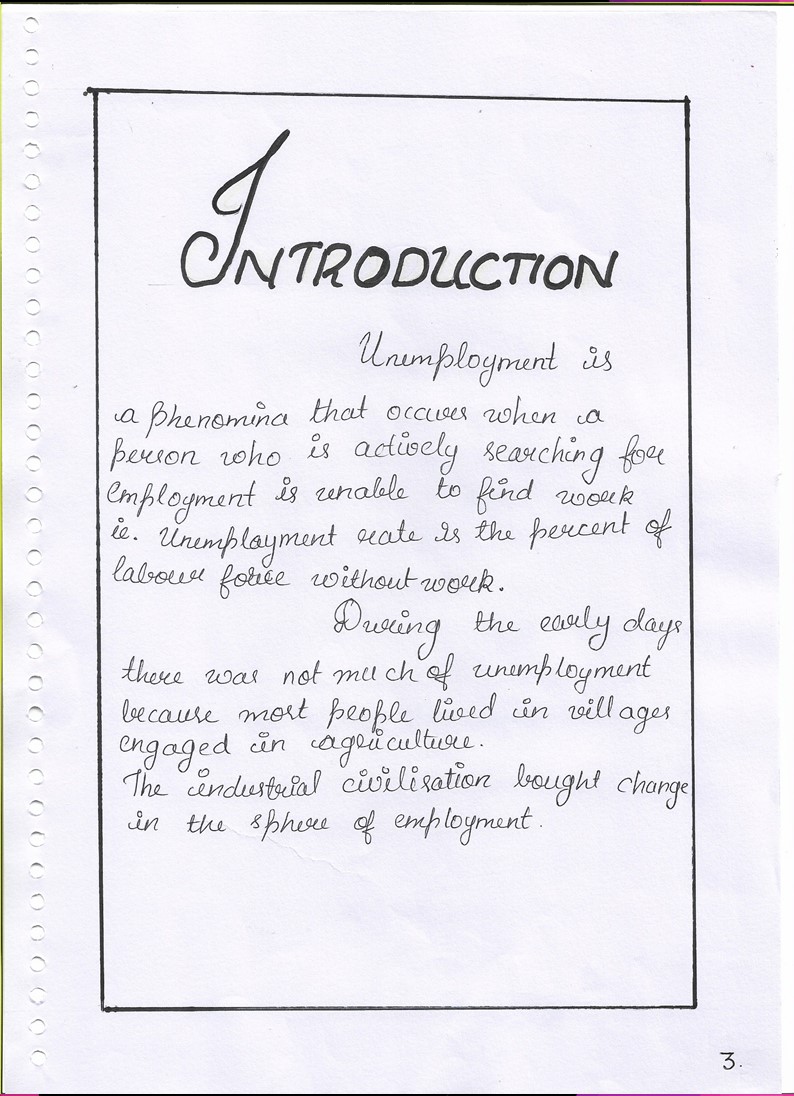 INTRODUCTION
Unemployment is
a phenomina that occurs when a
person who is actively searching for
employment is unable to find work
ie. Unemployment rate is the percent of
labour force without work.
During the early days
there was not much of unemployment
because most people lived in villages
engaged in agriculture.
The industrial civilisation bought change
in the sphere of employment.
3.